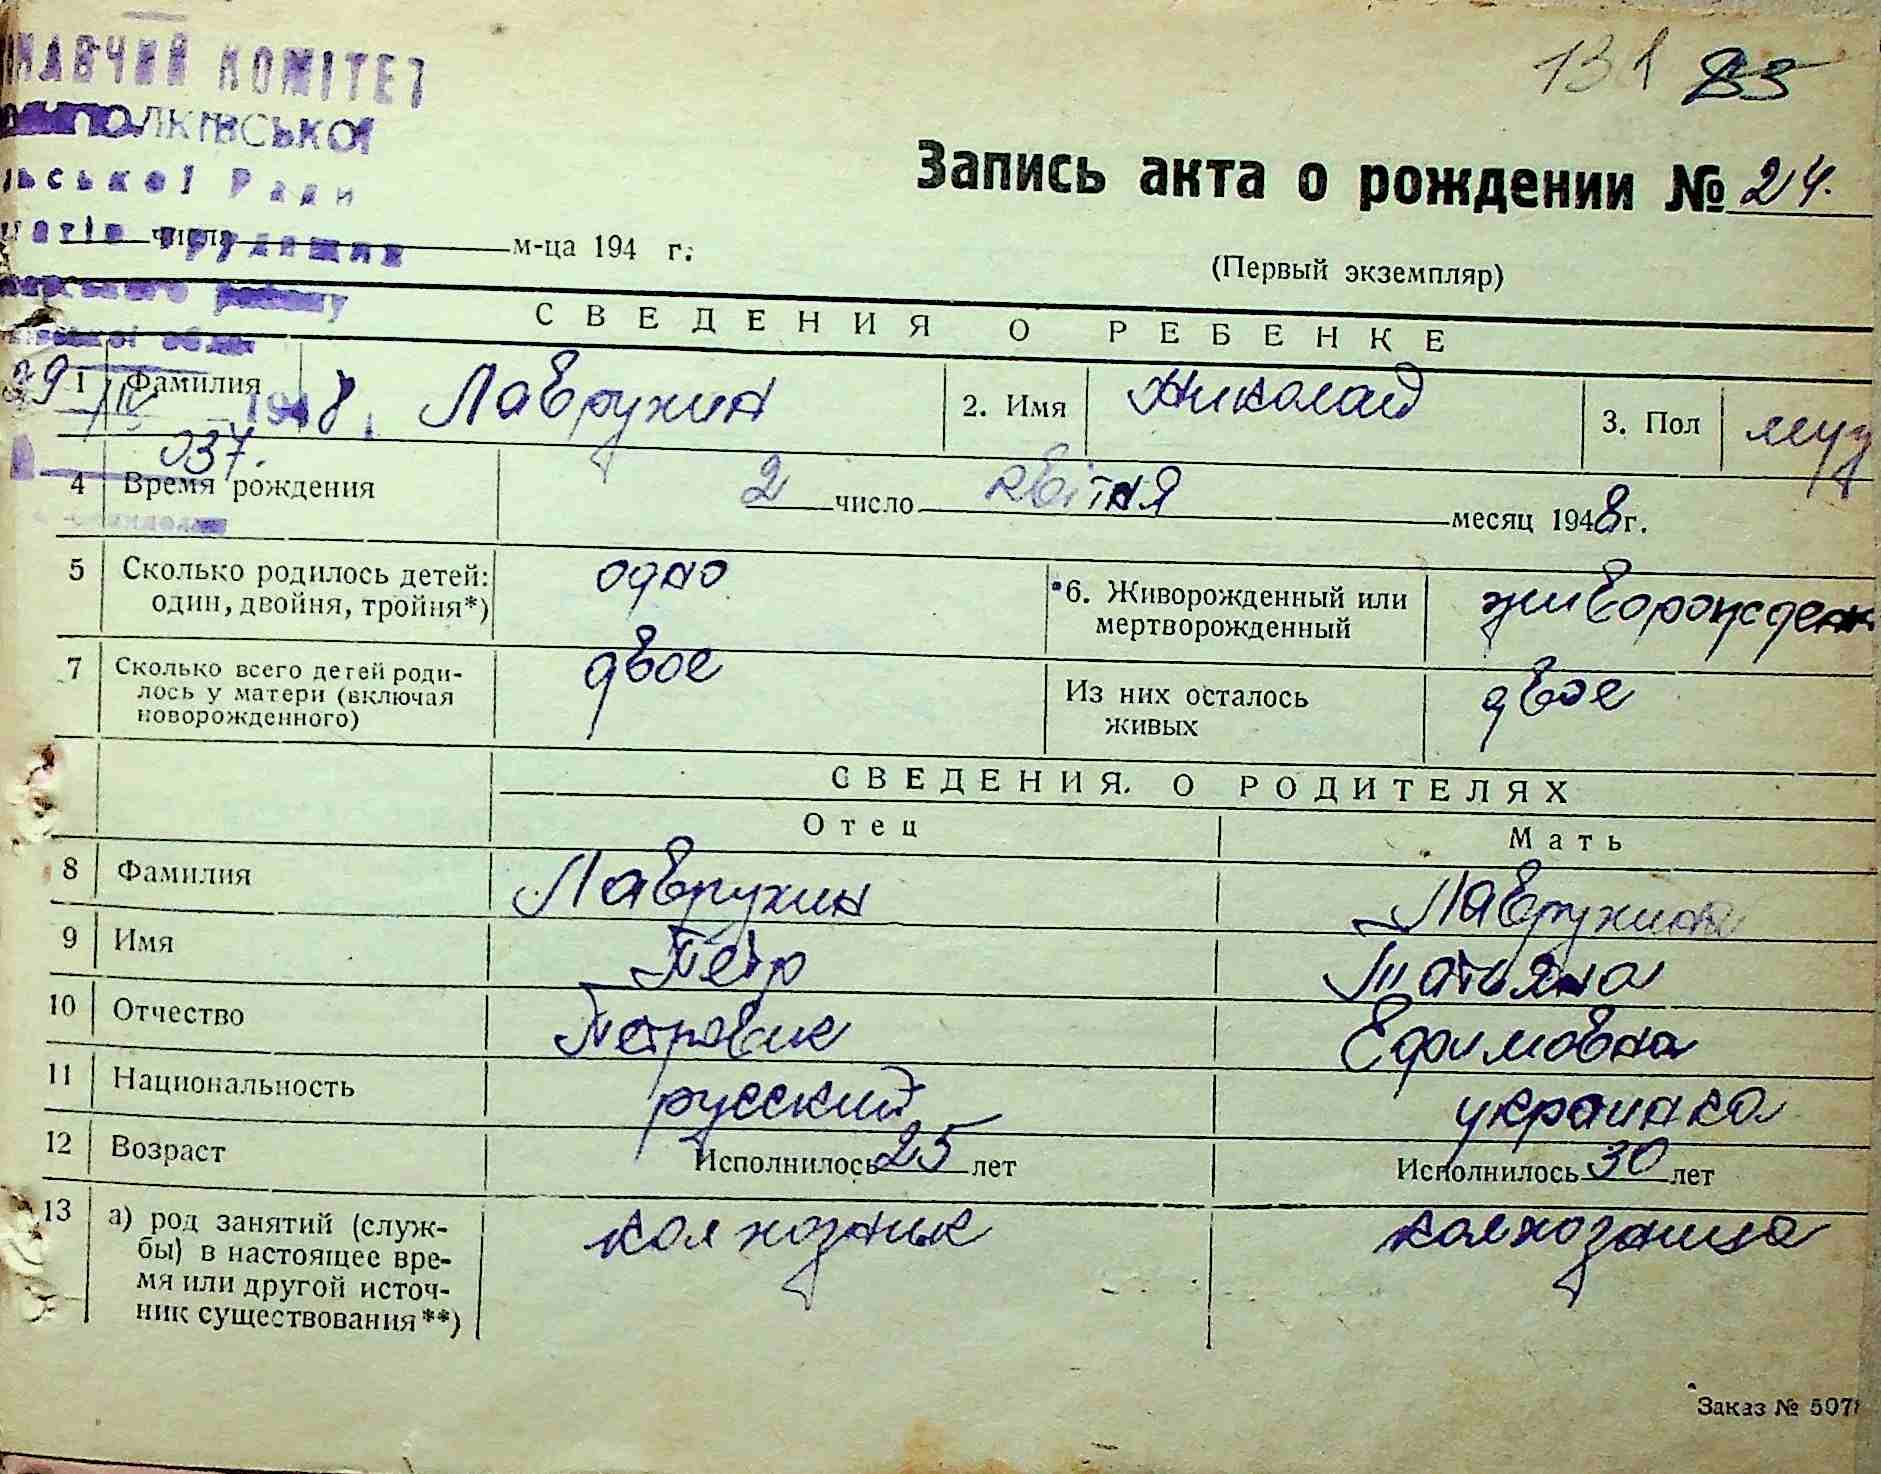 НАВЧИЙ КОМІТЕТ
131 85
ПОЛКІВСЬКОЇ
Запись акта о рождении № 24.
ільської Ради
числа м-ца 194 г.
(Первый экземпляр)
СВЕДЕНИЯ О РЕБЕНКЕ
29/IV 1948
1 Фамилия Лаврухин 2. Имя Николай 3. Пол муж
037.
4 Время рождения 2 число квітня месяц 1948 г.
5 Сколько родилось детей: один, двойня, тройня*) одно 6. Живорожденный или мертворожденный живорожден
7 Сколько всего детей родилось у матери (включая новорожденного) двое Из них осталось живых двое
СВЕДЕНИЯ О РОДИТЕЛЯХ
Отец Мать
8 Фамилия Лаврухин Лаврухина
9 Имя Петр Татьяна
10 Отчество Петрович Ефимовна
11 Национальность русский украинка
12 Возраст Исполнилось 25 лет Исполнилось 30 лет
13 а) род занятий (служ-
бы) в настоящее вре-
мя или другой источ-
ник существования**) колхозник колхозница
Заказ № 507